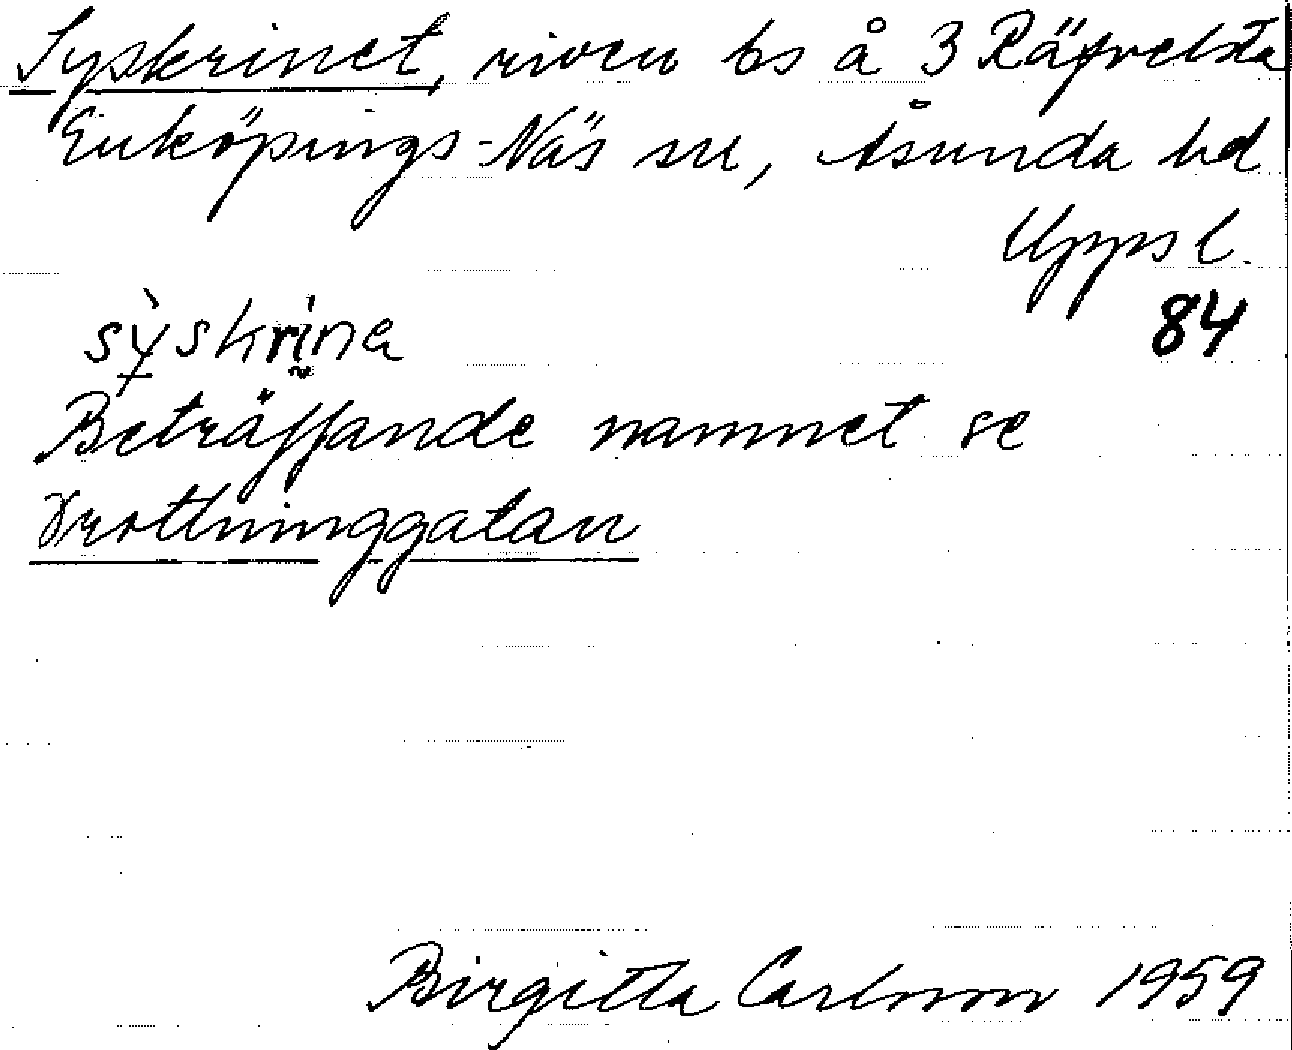 Syskrinet, riven bs å 3 Räfvelsta
Enköpings-Näs sn, Åsunda hd
Uppsl.
84
sỳskrina
Beträffande namnet se
Drottninggatan
Birgitta Carlsson 1959